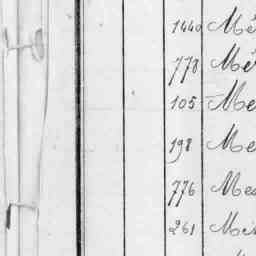 1440 Mé
778 Mé
105 Me
198 Me
776 Mes
261 Mes